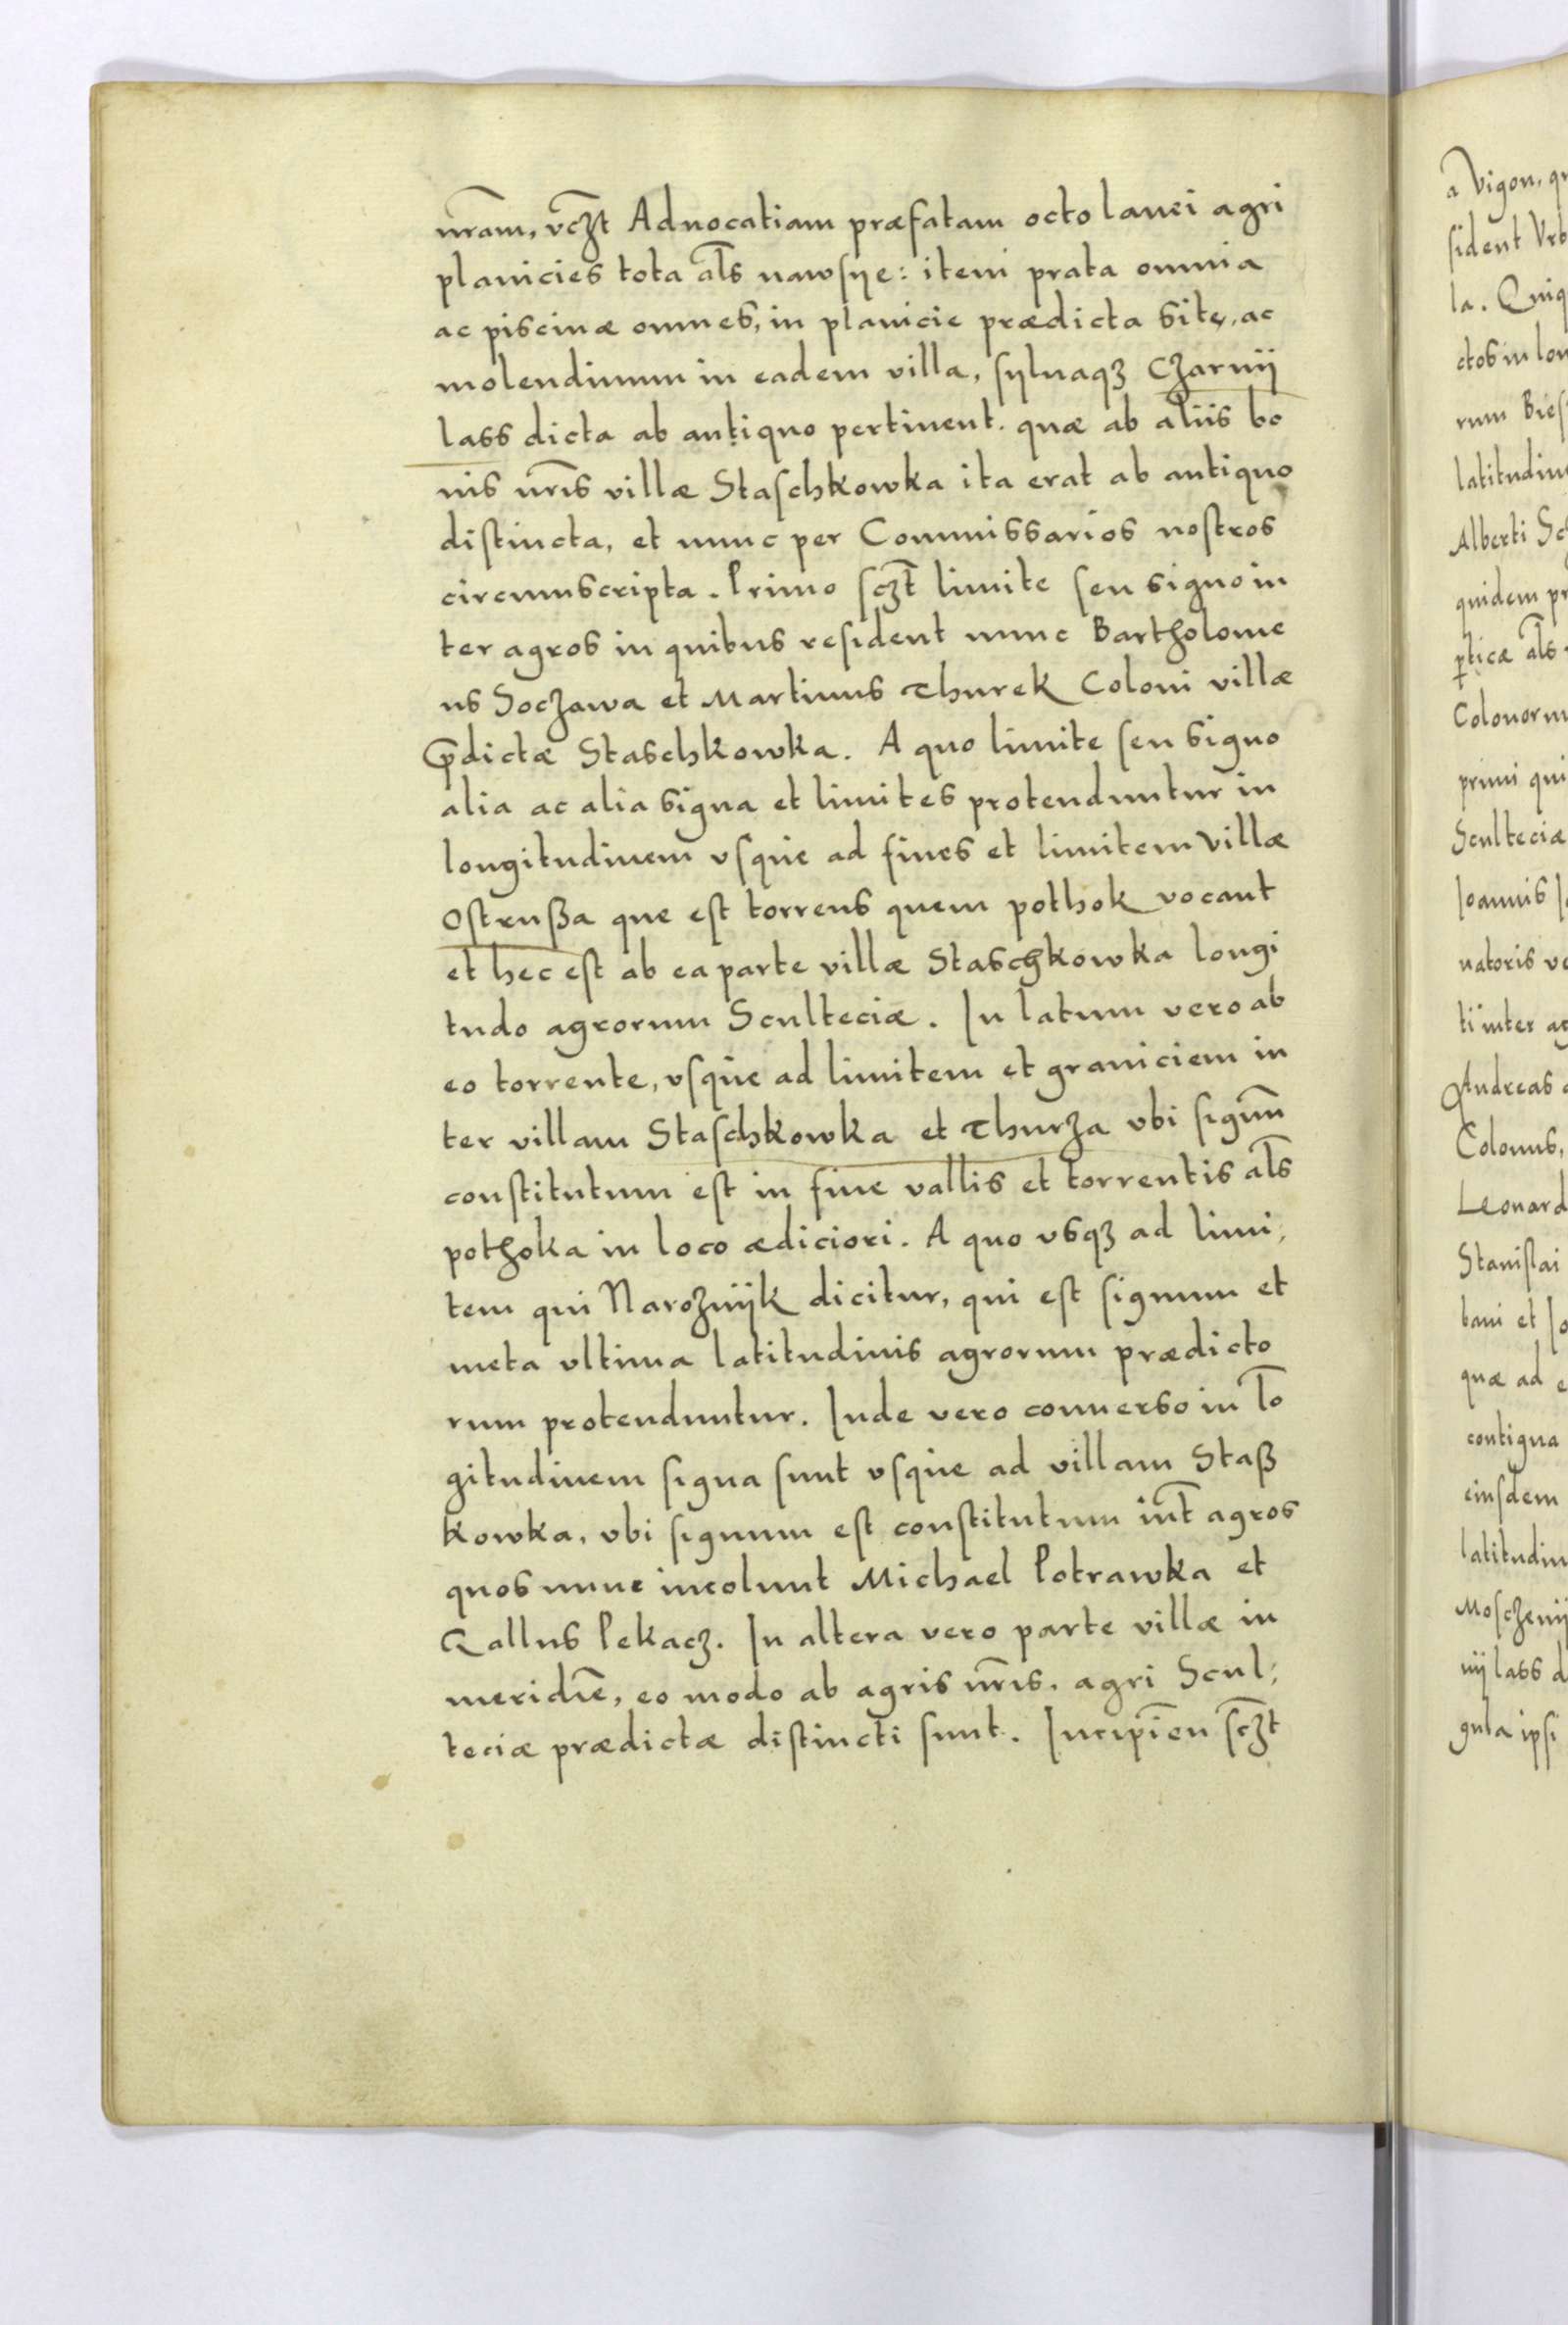 nr̃am, vcꝫ̃t Aduocatiam præfatam octo lanei agri
planicies tota al̃s nawsÿe: item prata omnia
ac piscinæ omnes, in planicie prædicta sitę, ac
molendinum in eadem villa, sÿluaqꝫ Czarnÿ
lass dicta ab antiquo pertinent. quæ ab aliis bo
nis nr̃is villæ Staschkowka ita erat ab antiquo
distincta, et nunc per Commissarios nostros
circumscripta. Primo scꝫ̃t limite seu signo in
ter agros in quibus resident nunc Bartholome
us Soczawa et Martinus Thurek Coloni villæ
p̃dictæ Staschkowka. A quo limite seu signo
alia ac alia signa et limites protenduntur in
longitudinem vsque ad fines et limitem villæ
Ostrußa que est torrens quem pothok vocant
et hec est ab ea parte villæ Staschkowka longi
tudo agrorum Sculteciæ. In latum vero ab
eo torrente, vsque ad limitem et graniciem in
ter villam Staschkowka et Thurza vbi signũ
constitutum est in fine vallis et torrentis al̃s
pothoka in loco ædiciori. A quo vsqꝫ ad limi,
tem qui Narożnÿk dicitur, qui est signum et
meta vltima latitudinis agrorum prædicto
rum protenduntur. Inde vero conuerso in lõ
gitudinem signa sunt vsque ad villam Staß
kowka, vbi signum est constitutum int̃ agros
quos nunc incolunt Michael Potrawka et
Gallus Pekacz. In altera vero parte villæ in
meridiẽ, eo modo ab agris nr̃is. agri Scul,
teciæ prædictæ distincti sunt. Incipien̄ scꝫ̃t
a Vigon, qu
sident Vrb
la. Quiq
ctos in lon
rum Bies
latitudin
Alberti Sc
quidem pr
p̱ticæ al̃s
Colonoru
primi qui
Sculteciæ
Ioannis
natoris ve
ti inter ag
Andreas
Colonus,
Leonard
Stanislai
bani et Io
quæ ad e
contigua
eiusdem
latitudin
Mosczenÿ
nÿ lass d
gula ipsi